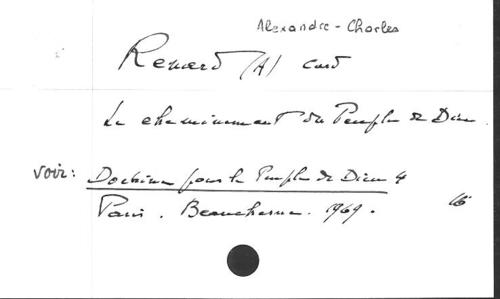 Alexandre-Charles
Renard (A) card
Le cheminement du Peuple de Dieu.
Voir: Doctrine pour le Peuple de Dieu 4
Paris. Beauchesne. 1969. 16